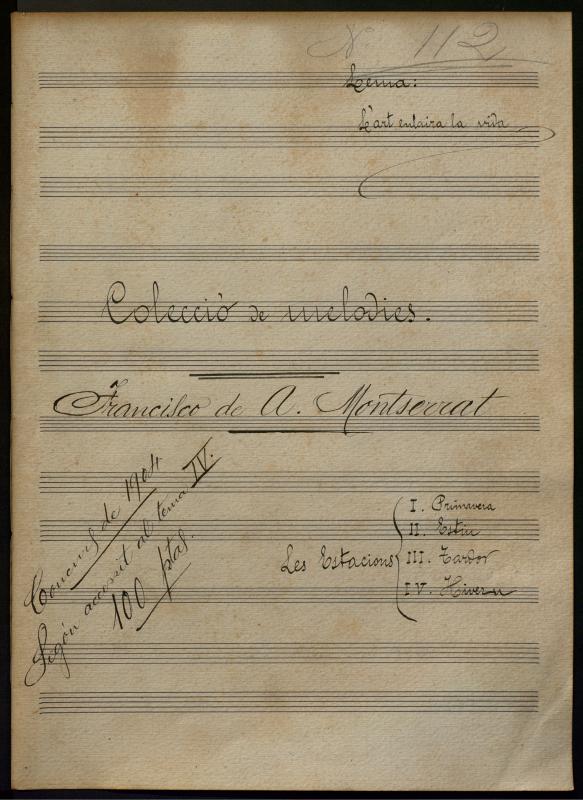 Nº 112
Lema:
L'art enlaira la vida
Colecció de melodies.
Francisco de A. Montserrat
Concurs de 1904
Segón accessit al tema IV.
100 ptas.
Les Estacions
I. Primavera
II. Estiu
III. Tardor
IV. Hivern